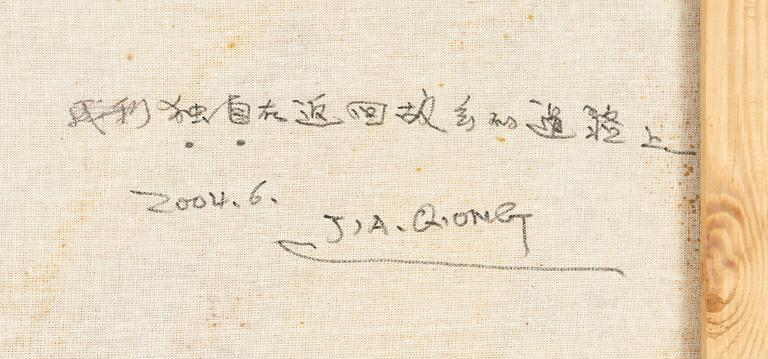 独自在返回故乡的道路上
2004.6.
JIA.QIONG